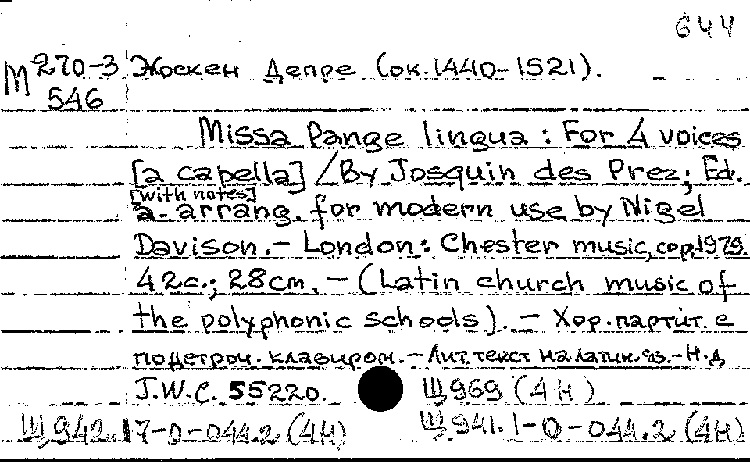 644
М 270-3 Жоскен Депре (ок. 1440-1521).
546
Missa Pange lingua : For 4 voices
[a capella] / By Josquin des Prez; Ed.
[with notes]
a. arrang. for modern use by Nigel
Davison. – London : Chester music, cop. 1979.
42 с.; 28 cm. – (Latin church music of
the polyphonic schools). – Хор. партит. с
подстроч. клавиром. – Лит. текст на латин. яз. – Н.д.
J.W.C. 55220. Щ969 (4Н)
Щ942.17-0-044.2 (4Н) Щ941.1-0-044.2 (4Н)